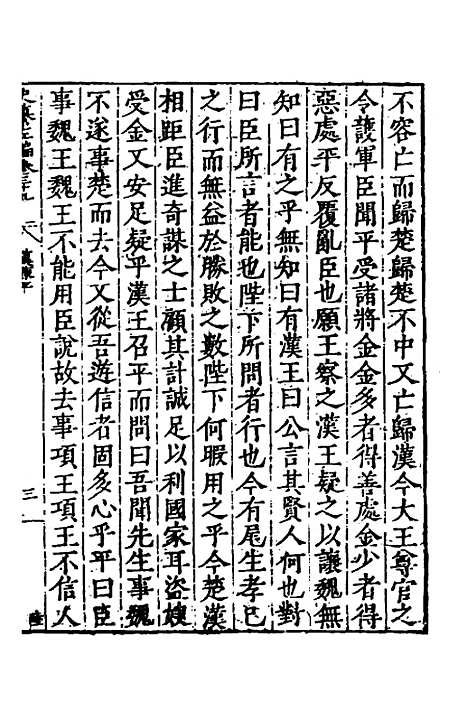 不容亡而歸楚歸楚不中又亡歸漢今大王尊官之
令護軍臣聞平受諸將金金多者得善處金少者得
惡處平反覆亂臣也願王察之漢王疑之以讓魏無
知曰有之乎無知曰有漢王曰公言其賢人何也對
曰臣所言者能也陛下所問者行也今有尾生孝已
之行而無益於勝敗之數陛下何暇用之乎今楚漢
相距臣進奇謀之士顧其計誠足以利國家耳盜嫂
受金又安足疑乎漢王召平而問曰吾聞先生事魏
不遂事楚而去今又從吾遊信者固多心乎平曰臣
事魏王魏王不能用臣說故去事項王項王不信人
三